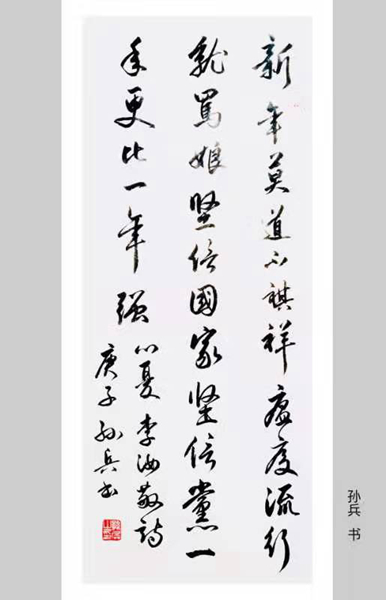 新年莫道不祺祥瘟疫流行
就罵娘坚信國家坚信黨一
年更比一年强
夏李汝敬詩
庚子孙兵书
孙兵 书